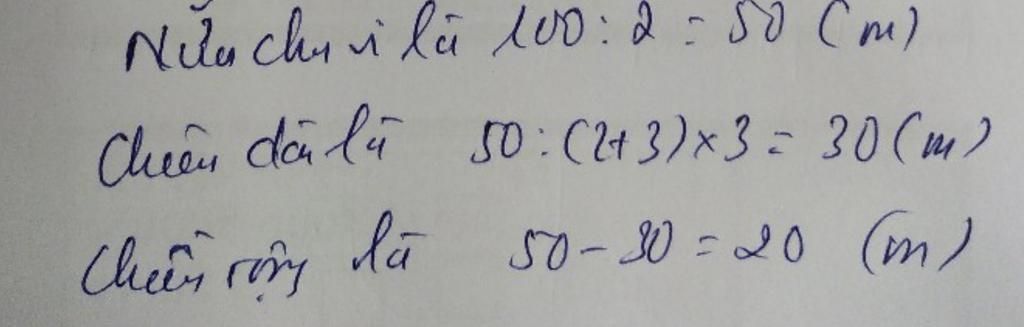 Nửa chu vi là 100 : 2 = 50 (m)
Chiều dài là 50 : (2+3) x 3 = 30 (m)
Chiều rộng là 50 - 30 = 20 (m)